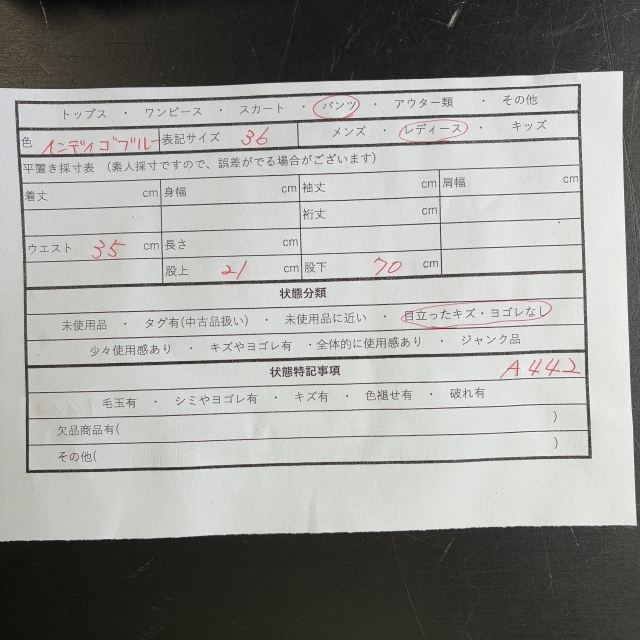 トップス ・ ワンピース ・ スカート ・ パンツ ・ アウター類 ・ その他
色 インディゴブルー 表記サイズ 36 メンズ ・ レディース ・ キッズ
平置き採寸表 (素人採寸ですので、誤差がでる場合がございます)
着丈 cm 身幅 cm 袖丈 cm 肩幅 cm
裄丈 cm
ウエスト 35 cm 長さ cm
股上 21 cm 股下 70 cm
状態分類
未使用品 ・ タグ有(中古品扱い) ・ 未使用品に近い ・ 目立ったキズ・ヨゴレなし
少々使用感あり ・ キズやヨゴレ有 ・全体的に使用感あり ・ ジャンク品
状態特記事項 A442
毛玉有 ・ シミやヨゴレ有 ・ キズ有 ・ 色褪せ有 ・ 破れ有
欠品商品有( )
その他( )